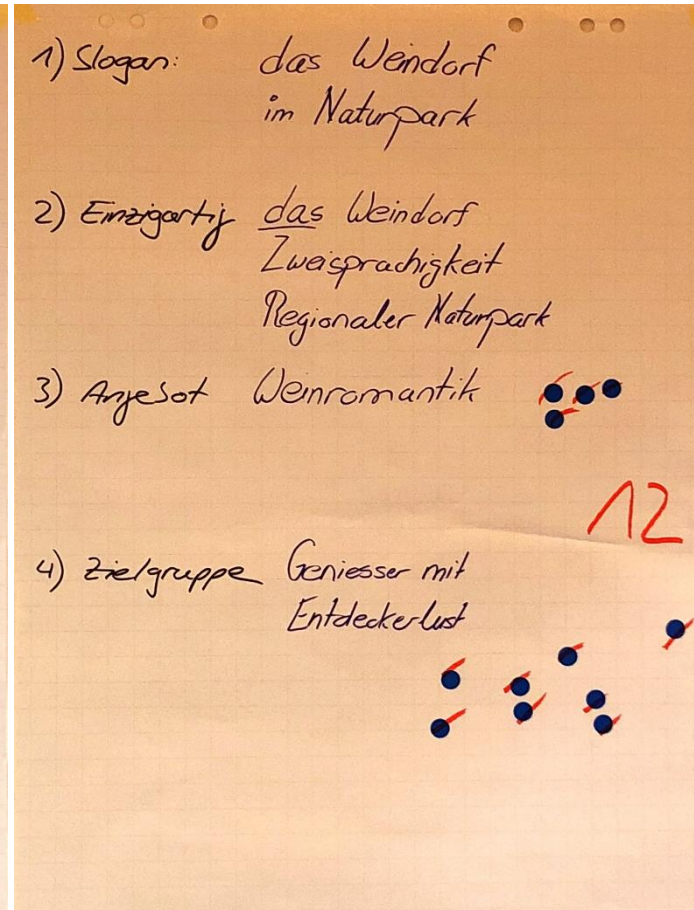 1) Slogan: das Weindorf
im Naturpark
2) Einzigartig das Weindorf
Zweisprachigkeit
Regionaler Naturpark
3) Angebot Weinromantik
12
4) Zielgruppe Geniesser mit
Entdeckerlust